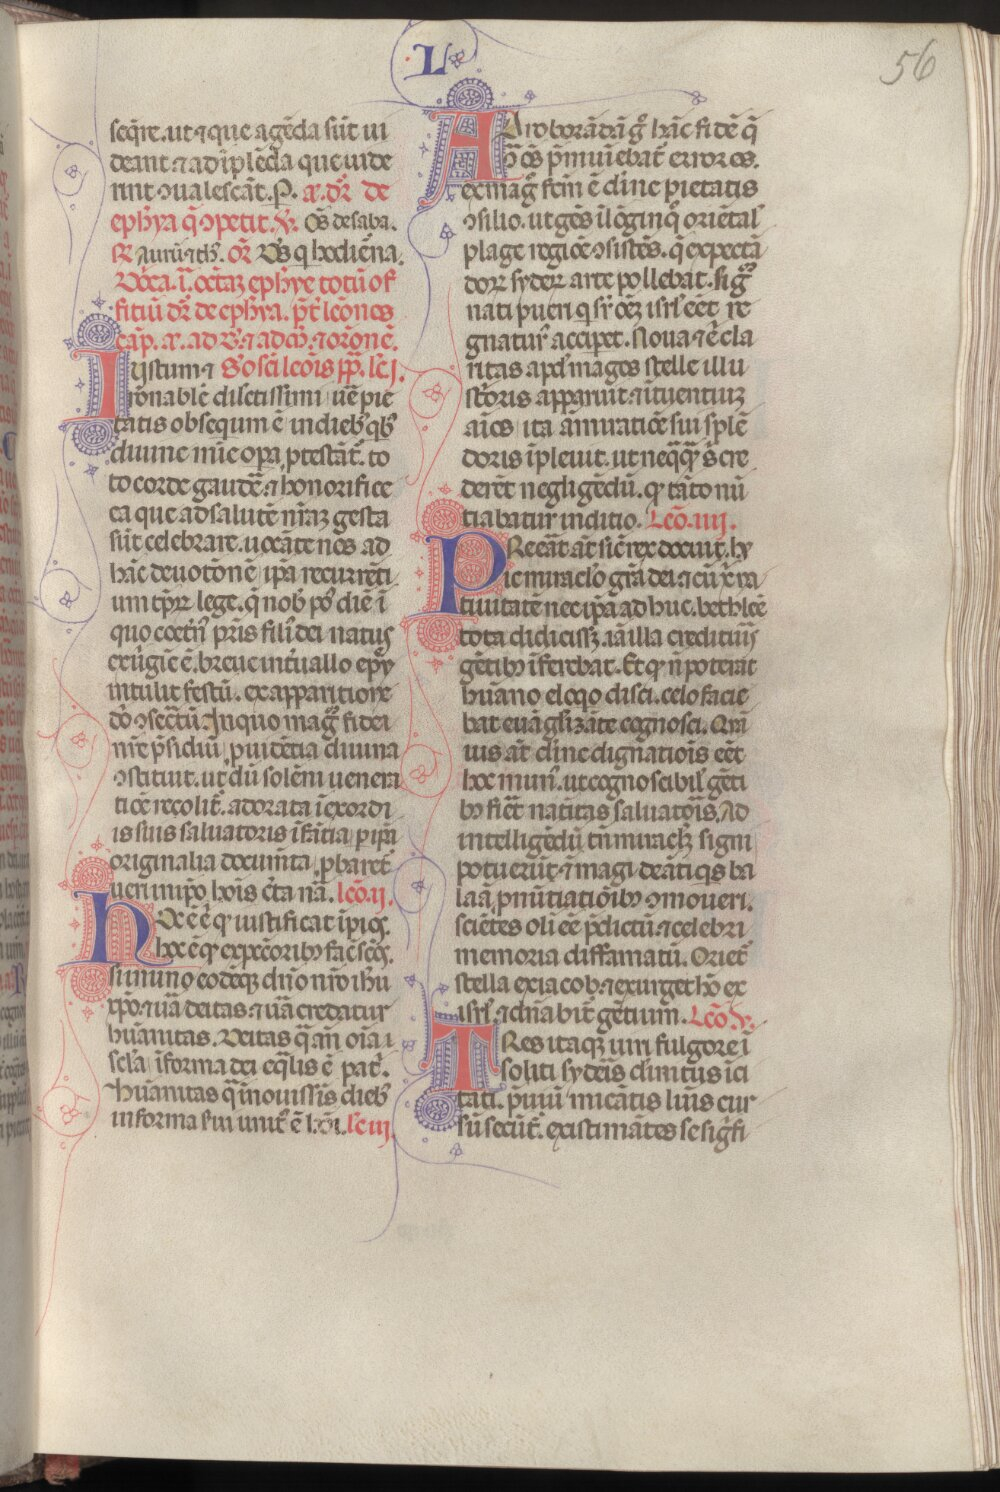 L
56
seqre. ut ⁊ que agēda sūt ui
deant ⁊ ad īplēda que uide
rint ꝯualescāt. P. a. dr̄ de
ephya q̄ ꝯpetit. V. Oēs de saba.
R Aurū ⁊ th. Or̄ Ds q hodiēna.
ītra. ī. octaꝫ ephye totū of
fitiū dr̄ de ephya. pt̄ lcōnes
cap. a. ad b̄. ⁊ ad m̄. ⁊ orōnē.
Iustum ⁊ Sō sci leōis pp̄. lc̄ I.
ronable dilectissimi ue pie
tatis obsequm ē in dieb qb
diuine mie opa ptestāt. to
to corde gaudē ⁊ honorifice
ea que ad salutē nrāꝫ gesta
sūt celebrare. uocāte nos ad
hāc deuotōnē ipa recurrēti
um tpꝝ lege. q̄ nob pꝰ diē ī
quo coet̄nꝰ pris filiꝰ dei natus
ex uigīe ē. breue int̄uallo epy
intulit festū. ex apparitione
dn̄i ꝯsec̄tū. In quo mag fidei
nr̄e p̄sidiū puidētia diuina
ꝯstituit. ut dū solēni uenera
tiōe recolit̄. adorata ī exordi
is suis saluatoris īfātia p ipā
originalia documta pbaret̄
ueri in xpo hois eē nā. lcō. ij.
Hoc ē. ē qꝫ iustificat īpios.
hoc ē qꝫ ex pcōribꝰ fac̄ scōs.
si in uno eodēqꝫ dn̄o nr̄o ihu
xpo ⁊ ua deitas. ⁊ ua credatur
huānitas. Deitas q̄ an oīa
scla ī forma dei eqlis ē pat.
huānitas q̄ in nouissis dieb
in forma sui unit ē hoī. lc̄ iij.
Ad roborādā g hāc fidē q̄
ꝯ oēs pmuniebat̄ errores.
ex mag fcm ē diuine pietatis
ꝯsilio. ut gēs ī lōginq̄ oriētal
plage regiōe ꝯsistēs. q̄ expectā
doꝝ sydeꝝ arte pollebat. sig
nati pueri q sr̄ oēꝫ isrl eēt re
gnaturꝰ accipet. Noua ⁊ ē cla
ritas apd magos stelle illu
strioris apparuit ⁊ ītuentiuꝫ
aīos ita amiratiōe sui splē
doris īpleuit. ut neqq̄q̄ s̄ cre
derēt negligēdū. qꝫ tāto nū
tiabatur inditio. Lcō. iiij.
Preerat at sic̄ res docuit. hu
ic miraclo gra dei ⁊ cū x na
tiuitatē nec ipā adhuc bethleē
tota didicissꝫ. iā illa credituris
gētibꝰ īferebat. Et qꝫ n̄ poterat
huāno eloqo disci. celo facie
bat euāgelizāte cognosci. Quā
uis at diuine dignatiōis eēt
hoc munꝰ. ut cognoscibil gēti
bꝰ fieret natiuitas saluatoris. Ad
intelligēdū tn̄ miraclꝫ signi
potuerūt ⁊ magi de āti q̄s ba
laā pnūtiatiōibꝰ ꝯmoueri.
sciētes oli eē p̄dictū. ⁊ celebri
memoria diffamatū. Oriet̄
stella ex iacob. ⁊ exurget ho ex
isrl. ⁊ dnabit̄ gētium. Lcō. V.
Tres itaqꝫ uiri fulgore ī
soliti syderis diuinitus ici
tati. puiū micātis luīs cur
sū secuti. existimātes se sigfi